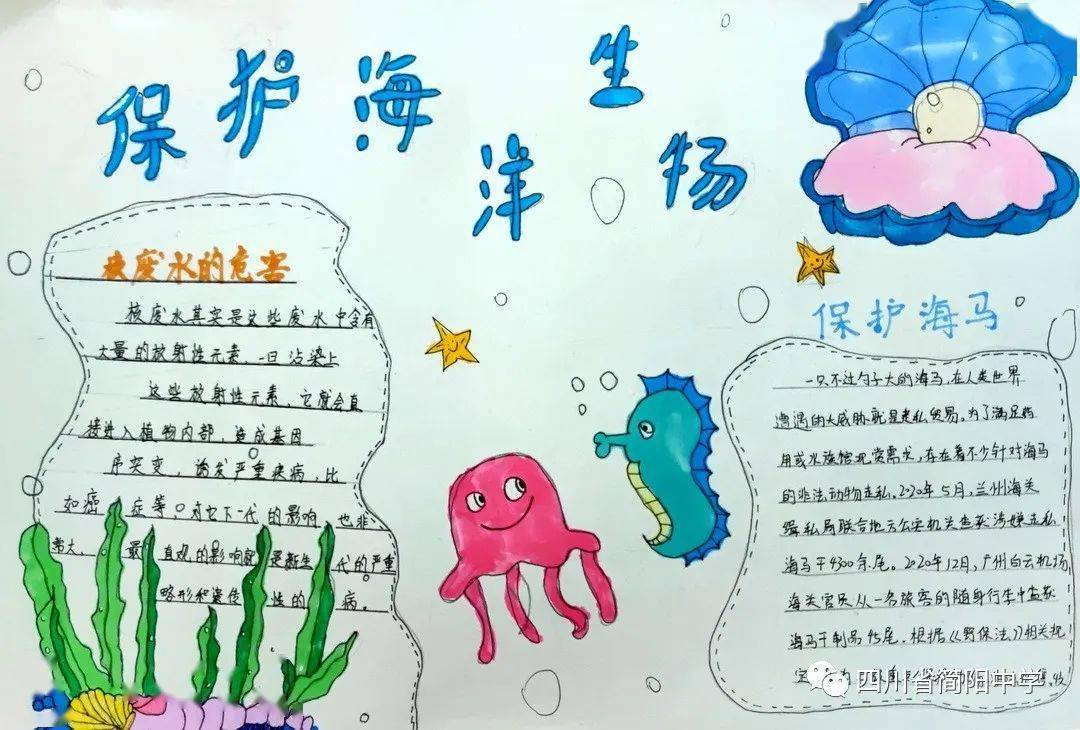 保护海洋生物
核废水的危害
核废水其实是这些废水中含有
大量的放射性元素、一旦沾染上
这些放射性元素,它就会直
接进入植物内部,造成基因
序突变,诱发严重疾病,比
如癌症等。对它下一代的影响也非
常大,最直观的影响就是新生代的严重
畸形和遗传性的病。
保护海马
一只不过勺子大的海马,在人类世界
遭遇的大威胁就是走私贸易。为了满足药
用或水族馆观赏需求,存在着不少针对海马
的非法动物走私。2020年5月,兰州海关
缉私局联合地方公安机关查获涉嫌走私
海马干4300余尾。2020年12月,广州白云机场
海关官员从一名旅客的随身行李中查获
海马干制品45尾。根据《野保法》相关规
四川省简阳中学